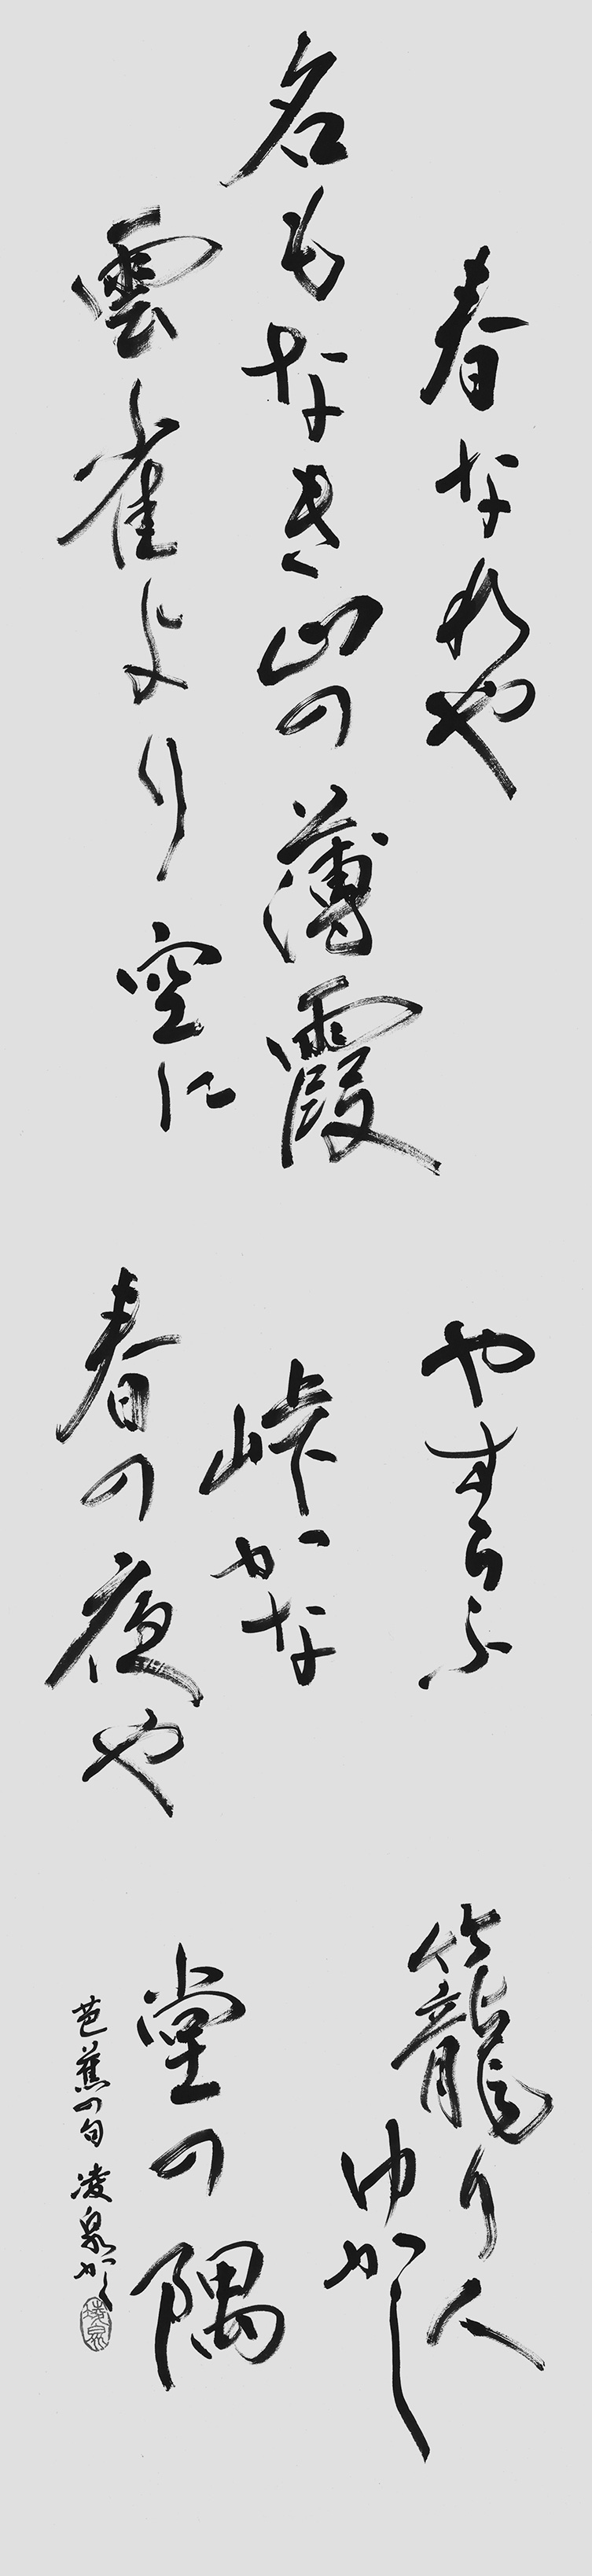 春なれや
名もなき山の薄霞
雲雀より空に
やすらふ
峠かな
春の夜や
籠り人
ゆかし
堂の隅
芭蕉の句 凌泉かく